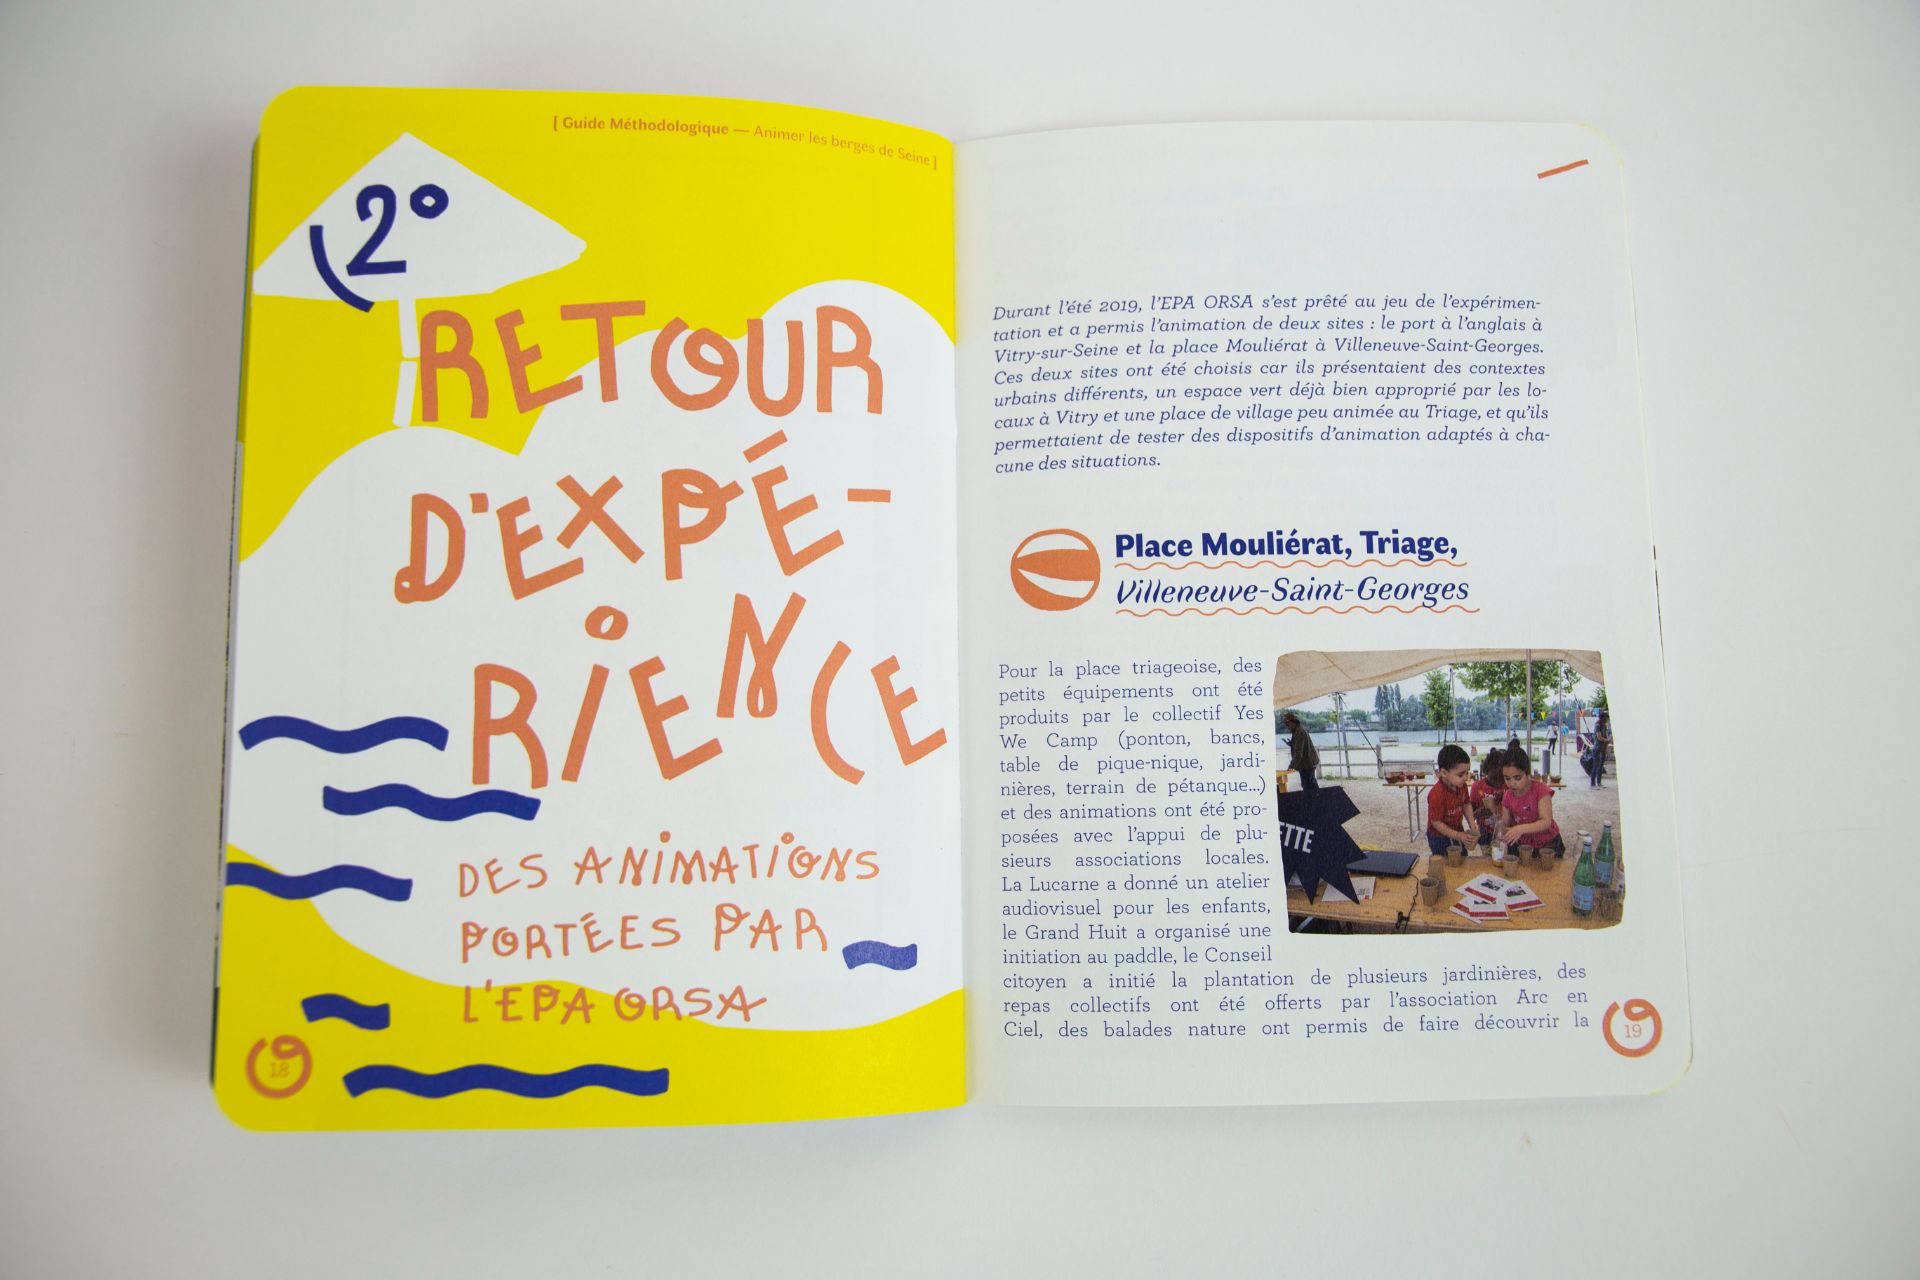 [ Guide Méthodologique — Animer les berges de Seine ]
2°
RETOUR
D'EXPÉ-
RIENCE
DES ANIMATIONS
PORTÉES PAR
L'EPA ORSA
18
Durant l'été 2019, l'EPA ORSA s'est prêté au jeu de l'expérimen-
tation et a permis l'animation de deux sites : le port à l'anglais à
Vitry-sur-Seine et la place Mouliérat à Villeneuve-Saint-Georges.
Ces deux sites ont été choisis car ils présentaient des contextes
urbains différents, un espace vert déjà bien approprié par les lo-
caux à Vitry et une place de village peu animée au Triage, et qu'ils
permettaient de tester des dispositifs d'animation adaptés à cha-
cune des situations.
Place Mouliérat, Triage,
Villeneuve-Saint-Georges
Pour la place triageoise, des
petits équipements ont été
produits par le collectif Yes
We Camp (ponton, bancs,
table de pique-nique, jardi-
nières, terrain de pétanque...)
et des animations ont été pro-
posées avec l'appui de plu-
sieurs associations locales.
La Lucarne a donné un atelier
audiovisuel pour les enfants,
le Grand Huit a organisé une
initiation au paddle, le Conseil
citoyen a initié la plantation de plusieurs jardinières, des
repas collectifs ont été offerts par l'association Arc en
Ciel, des balades nature ont permis de faire découvrir la
ETTE
19